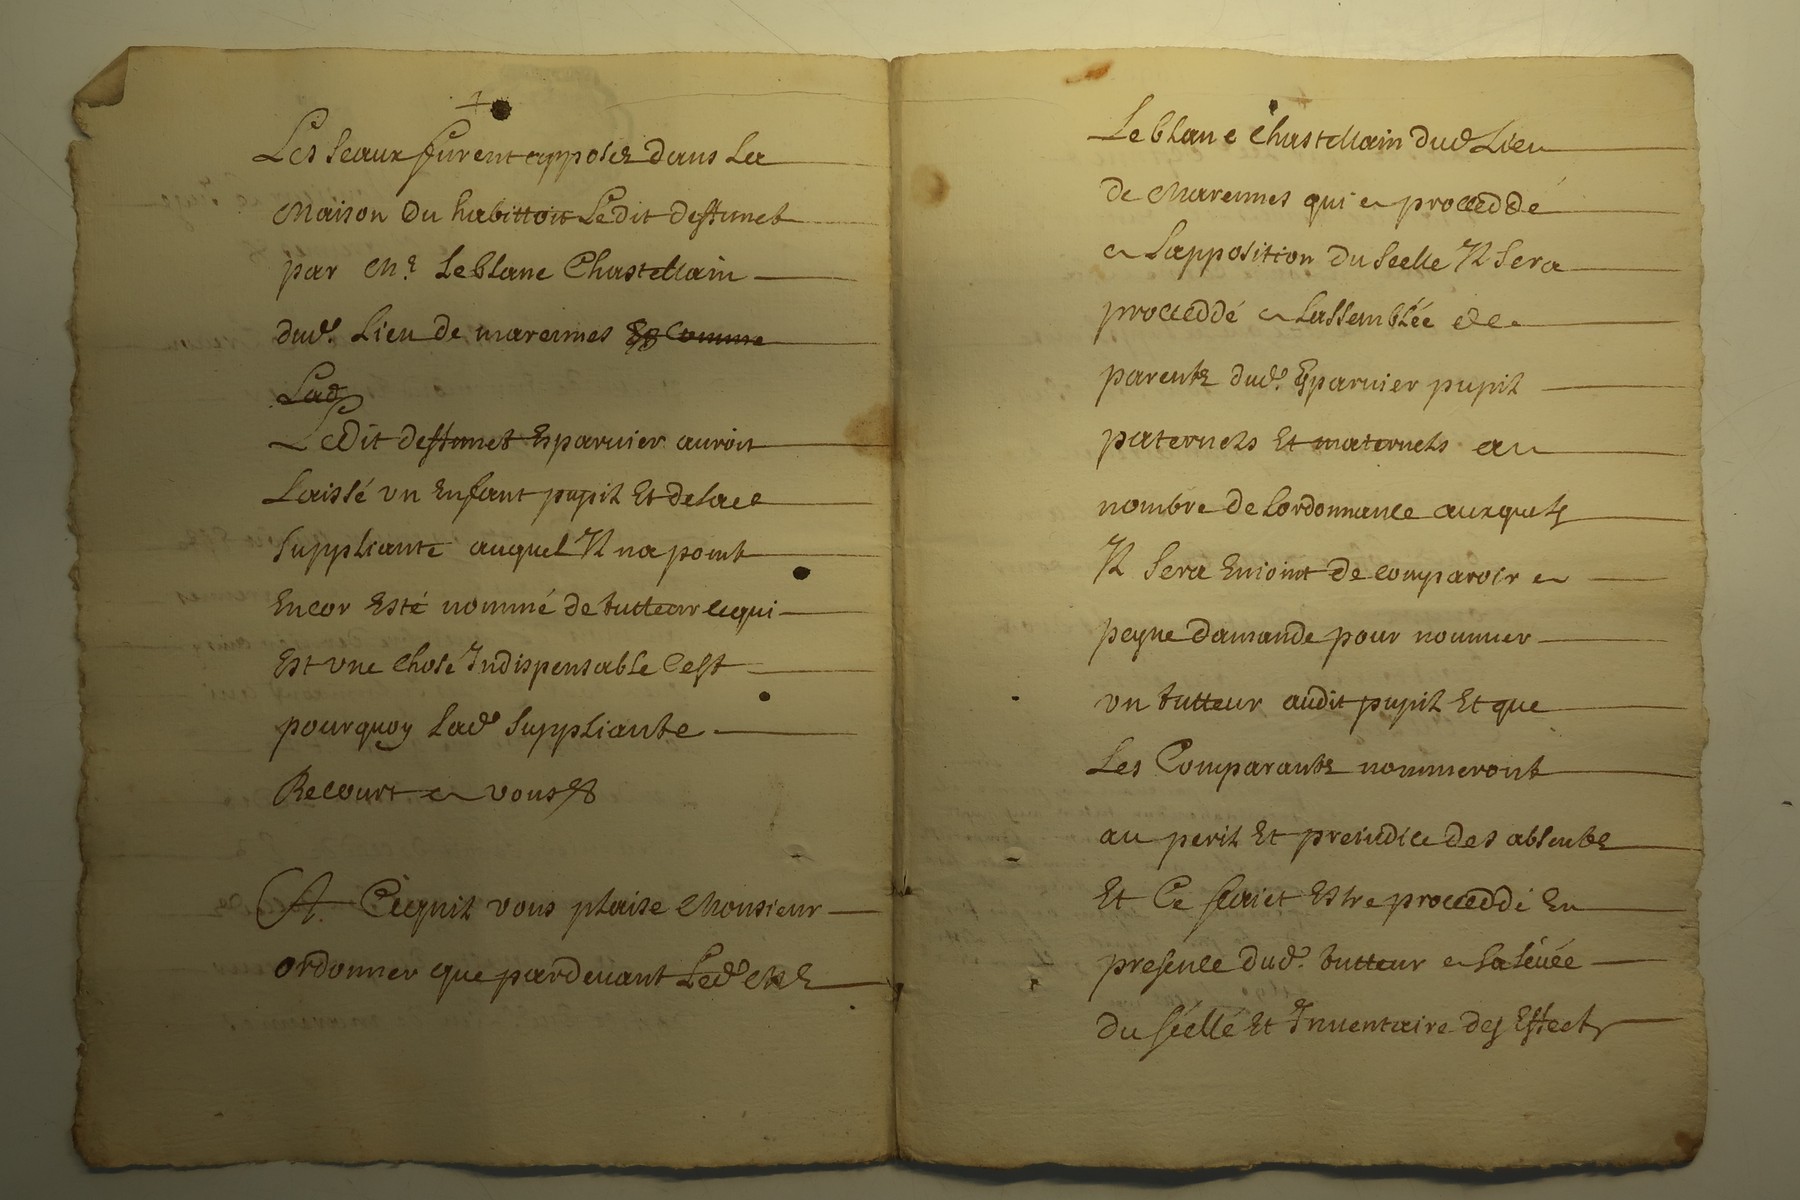 Les seaux furent apposez dans La
Maison Du habittoit Ledit deffunct
par Mr. Leblanc Chastellain
dud. Lieu de marennes Et Comme
Lad
Ledit deffunct Esparvier auroit
Laissé un Enfant pupil Et de lad
Suppliante auquel Il na point
Encor Esté nommé de tutteur cequi
Est une chose Indispensable Cest
pourquoy Lad. Suppliante
Recourt a vous
A. Cequil vous plaise Monsieur
ordonner que pardevant Led. Mr
Leblanc Chastellain dud. Lieu
de Marennes qui a proceddé
a Lapposition du scelle Il Sera
proceddé a Lassemblée de
parents dud. Esparvier pupil
paternels Et maternels au
nombre de Lordonnance auxquels
Il Sera Enioint de comparoir a
peyne damande pour nommer
un tutteur audit pupil Et que
Les Comparants nommeront
au peril Et preiudice des absents
Et Ce faict Estre proceddé En
presence dud. tutteur a La levée
du scellé Et Inventaire des Effects